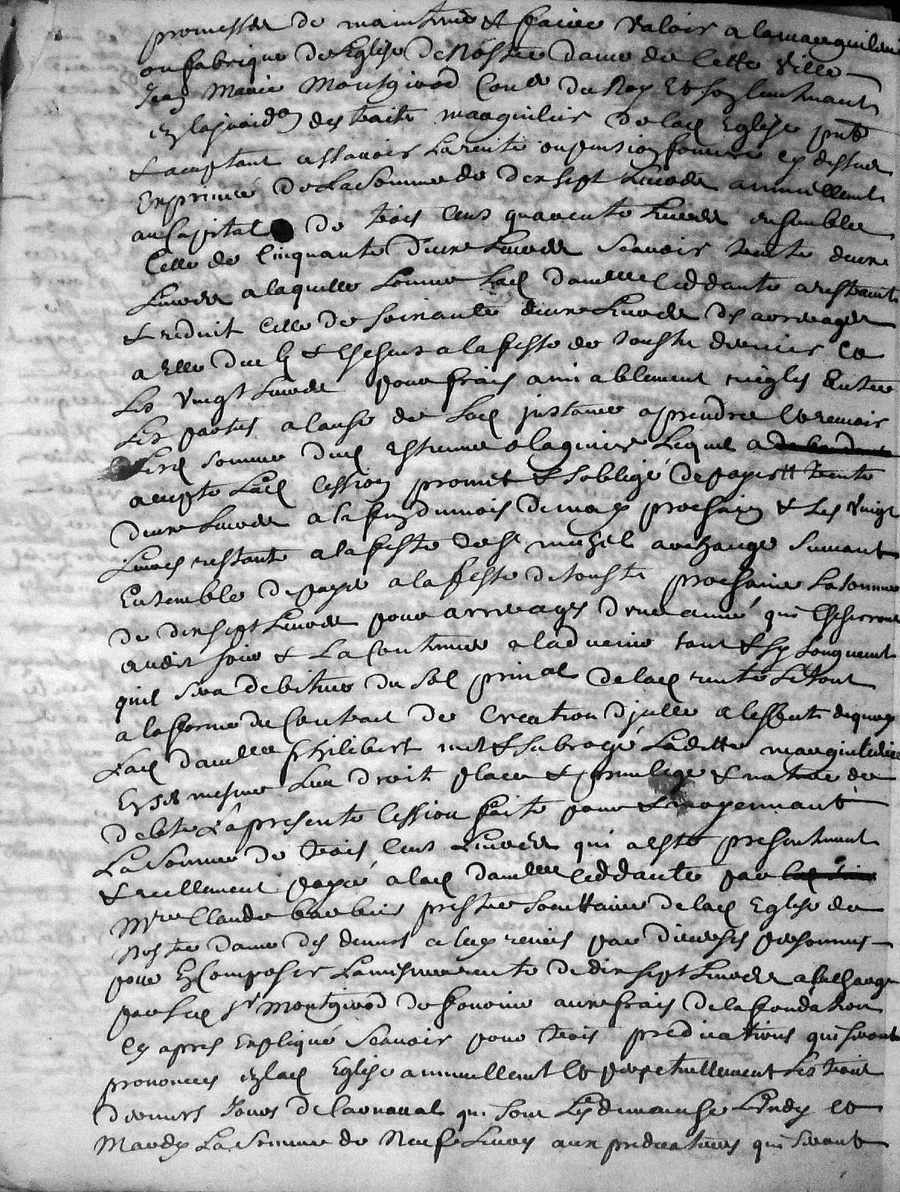 promesse de maintenir et faire valoir a la marguilerie
ou fabrique de Eglise de Nostre dame de Cette Ville
Jean Marie Montgirod Con.er du Roy Et son lieutenant
des traite marguilier de lad Eglise pnt
et aceptant assavoir La rente ou pension fonciere cy dessus
En principe de La Somme de dix sept Livres annuellemt
au Capital de trois Cens quarente Livres ensemble
Celle de Cinquante d'une Livres Scavoir trente d'une
Livres a laquelle Somme Lad damlle Ceddante a restraint
et reduit Celle de Soixante d'une Livres de arrerages
a Elle due et Escheus a la feste de toussts dernier Et
Les Vingt Livres pour frais amiablement reiglés Entre
Les parties a Cause de Lad instance a prendre Et recevoir
somme dud Estienne Lequel a
acepté Lad Cession promet et s'oblige de payer trente
d'une Livres a la fin du mois de may prochain et Les Vingt
Livres restante a la feste de St michel archange Suivant
Ensemble de payer a la feste de toussts prochaine La somme
de dix sept Livres pour arrerages d'une année qui Escherront
audit jour et La Continuer a ladvenir tant et sy Longuemt
quil sera debiteur du Sol prinal de lad rente Le tout
a la forme du Contract de Creation d'jcelle a leffect dequoy
Lad damlle Philibert met et subroge Ladette marguilerie
En son mesme Lieu droit place et privilege et nature de
debte La presente Cession faite pour et moyennant
La Somme de trois Cens Livres qui a esté presentement
et reellement payée a lad damlle Ceddante par
Mre Claude barbier prestre Societaire de lad Eglise de
Nostre dame des deniers a luy remis par diverses personnes
pour En Composer La mesme rente de dix sept Livres a la Charge
par Led Sr Montgirod de fournir aux frais de la fondation
Cy apres Expliqué Scavoir pour trois predications qui seront
prononcées En lad Eglise annuellemt Et perpetuellement Les trois
derniers Jours de Carnaval qui sont Les dimanche Lundy Et
Mardy La Somme de Neuf Livres aux predicateurs qui seront